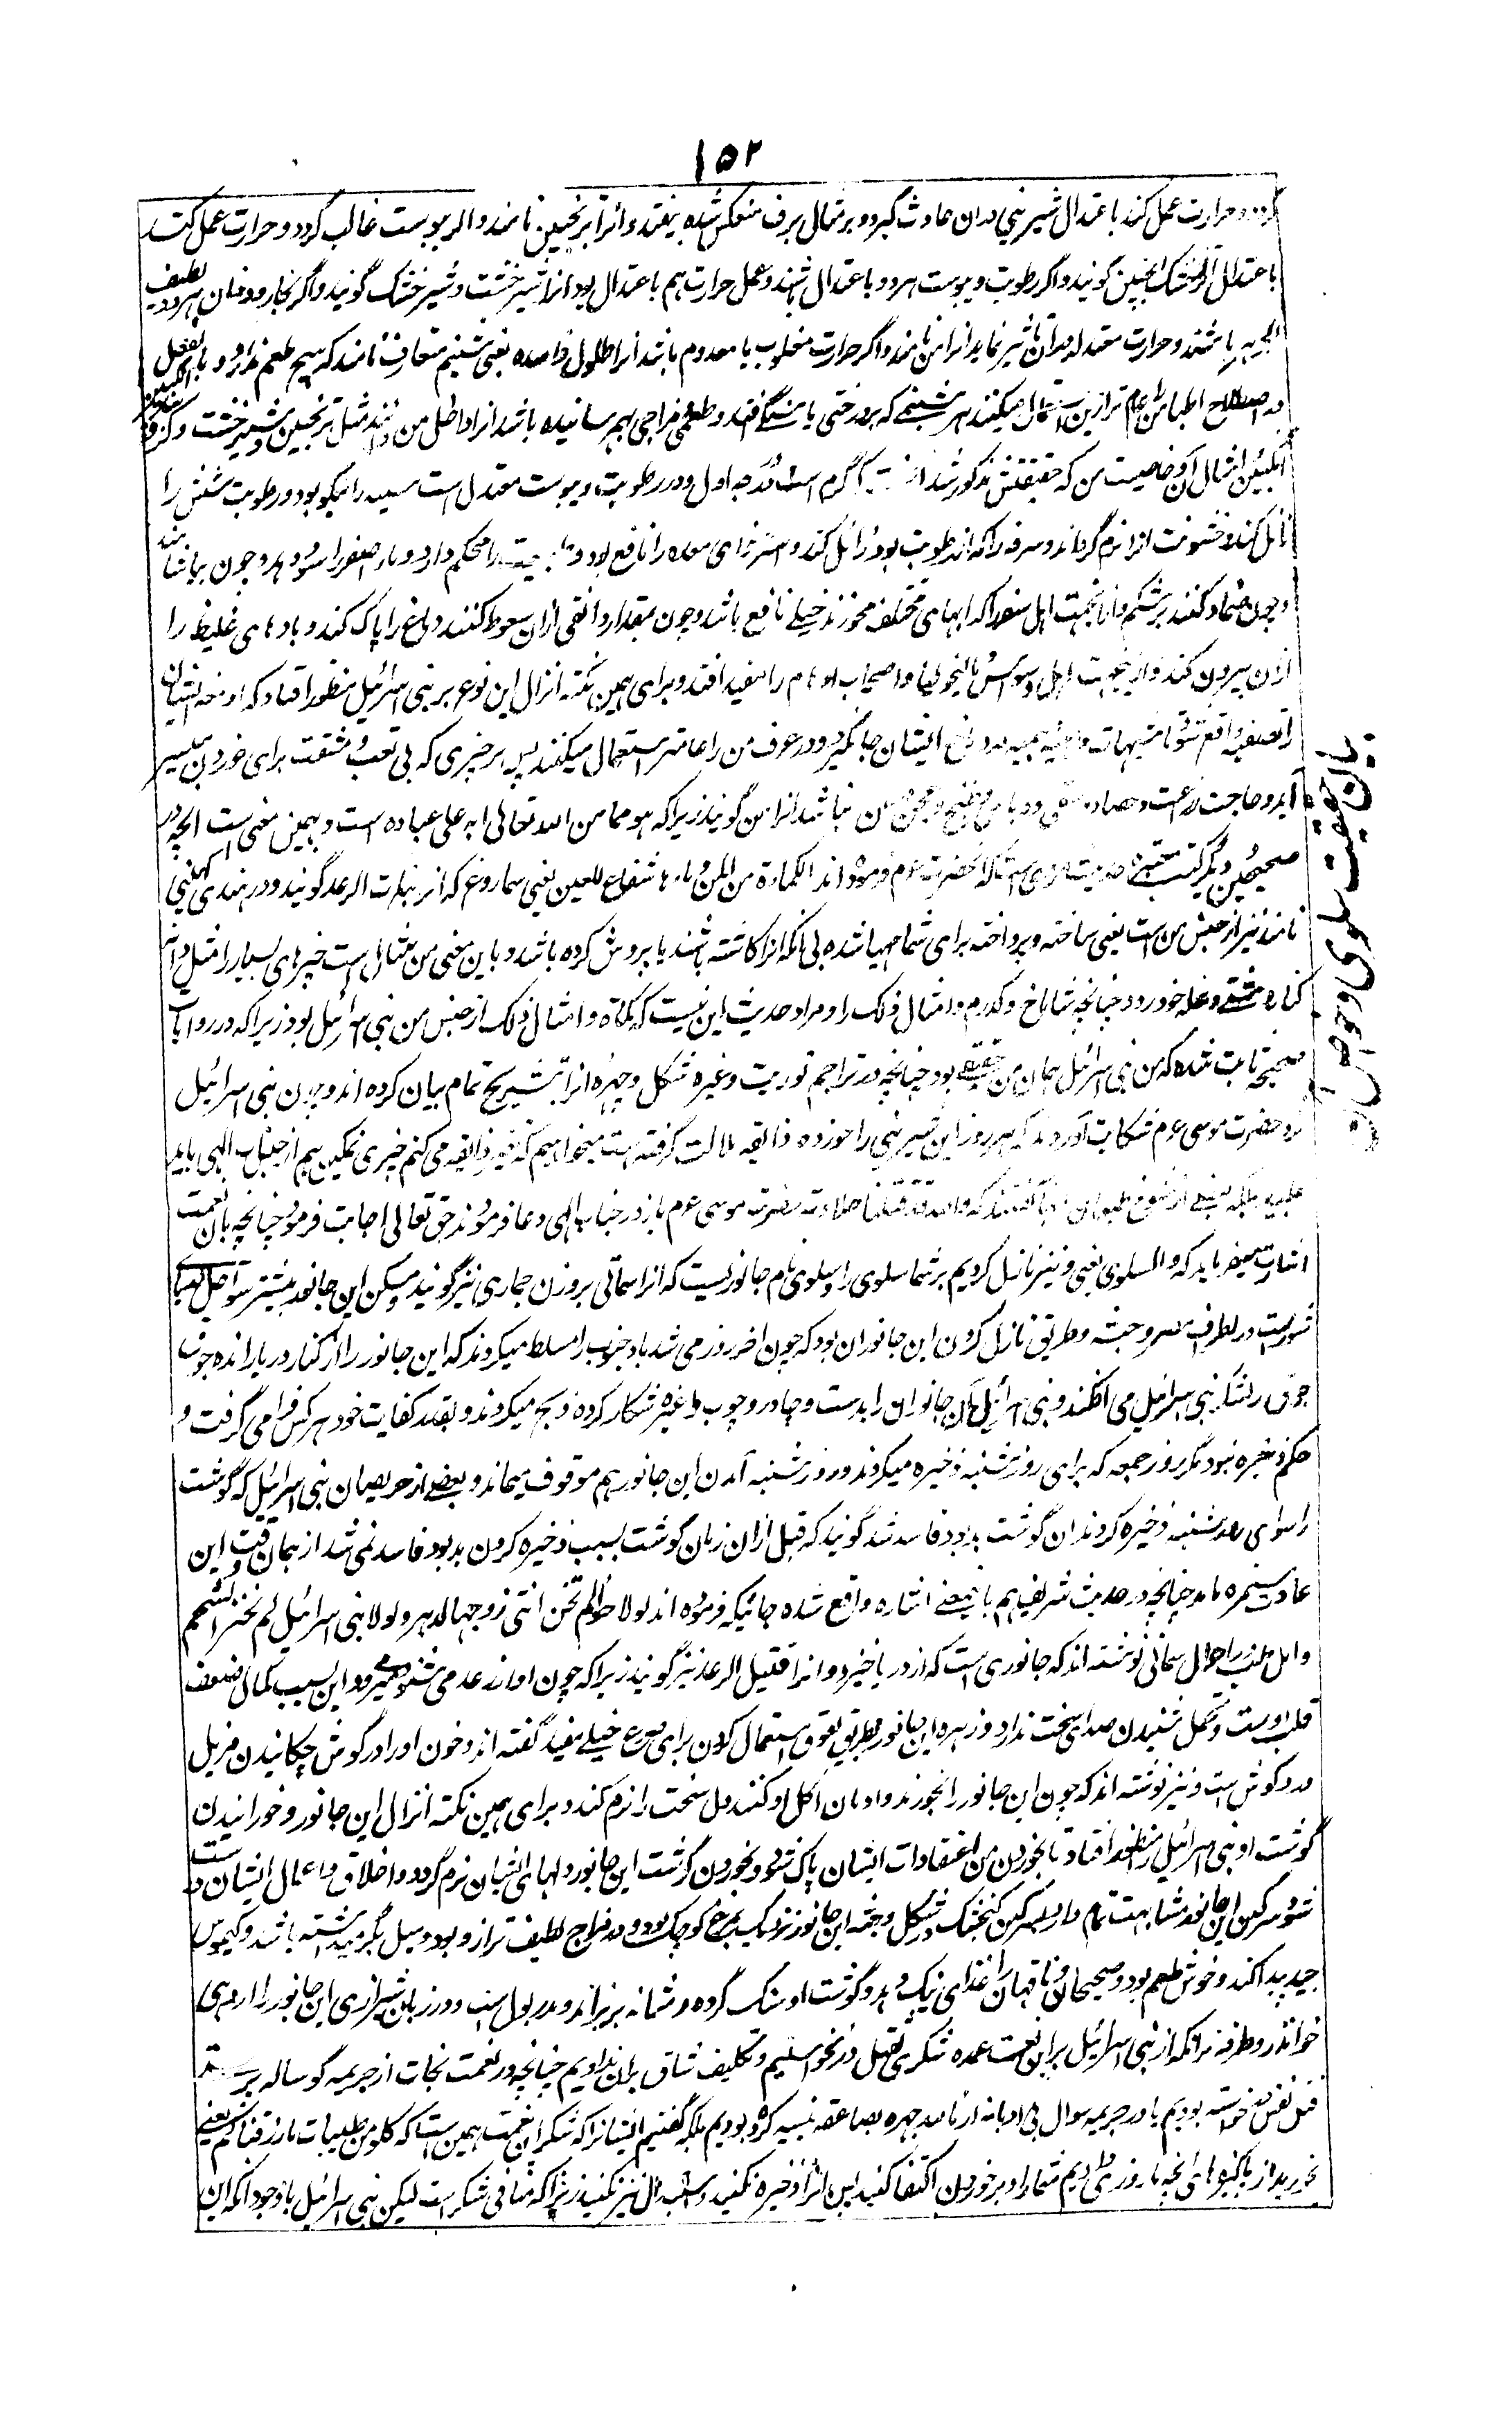 ۱۵۲
گردد و حرارت عمل کند باعتدال شیرینی دران حادث گیرد و بر مثال برف منعکس شده بیفتد و انرا ترنجبین نامند و اگر یبوست غالب گردد و حرارت عمل کند
باعتدال انرا خشک انجبین گویند و اگر رطوبت و یبوست هر دو باعتدال باشند و عمل حرارت هم باعتدال بود انرا شیرخشت و شیر خشک گویند و اگر بخار و دخان هر دو لطیف
باشند و حرارت معتدله دران تاثیر نماید انرا من نامند و اگر حرارت مغلوب یا معدوم باشد انرا طلول فاسده یعنی شبنم متعارف نامند که هیچ طعم ندارد و بالفعل
در اصطلاح اطبا من را عام تر ازین استعمال میکنند هر شبنمے که بر درختی یا سنگے افتد و طعمی و مزاجی بهم رسانیده باشد انرا داخل من دانند مثل ترنجبین و شیرخشت و گز
انگبین و امثال آن و خاصیت من که حقیقتش مذکور شد گرم است در درجه اول و در رطوبت و یبوست معتدل است سینه را نیکو بود و رطوبت شش را
زائل کند و خشونت انرا نرم گرداند و سرفه را که از رطوبت بود زائل کند و معده را نافع بود و را محکم دارد و صفرا را سود دهد و چون بیاشامند
و چون ضماد کنند بر شکم و ازینجهت اهل سفر را که ابهای مختلفه میخورند خیلے نافع باشد و چون بمقدار دانقی ازان سعوط کنند دماغ را پاک کند و بادهای غلیظ را
ازان بیرون کند و ازینجهت اهل وسواس مالیخولیا و اصحاب اوهام را مفید افتد و برای همین نکته انزال این نوع بر بنی اسرائیل منظور افتاد که ادمغه ایشان
را تصفیه واقع شود تا شبهات در دماغ ایشان جا نگیرد و در عرف من را عامتر استعمال میکنند پس هر چیزی که بی تعب و مشقت برای خوردن میسر
آید و حاجت زراعت و حصاد و طبخ و عجن دران نباشد انرا من گویند زیرا که هو مما من الله تعالی به علی عباده است و بهمین معنی است انچه در
صحیحین و دیگر کتب حدیث مروی است که آنحضرت صلعم فرموده اند الکمأة من المن و ماءها شفاء للعین یعنی سماروغ که انرا نبات الرعد گویند و در هندی کهنبی
نامند نیز از جنس من است یعنی ساخته و پرداخته برای شما مهیا شده بی انکه انرا کاشته باشند یا پرورش کرده باشد و باین معنی من شامل است چیزهای بسیار را مثل
و غله خودرو چنانچه شاماخ و کدرم و امثال ذلک را و مراد حدیث این نیست که کمأة و امثال ذلک از جنس من بنی اسرائیل بود زیرا که در روایات
صحیحه ثابت شده که من بنی اسرائیل همان من حقیقی بود چنانچه در تراجم توریت و غیره شکل و چهره انرا بتشریح تمام بیان کرده اند و چون بنی اسرائیل
نزد حضرت موسی عم شکایت آوردند که هر روز این شیرینی را خورده ذائقه ملالت گرفته است میخواهیم که تغیر ذائقه می کنیم چیزی نمکین هم از جناب الهی باید
طلبید بلکه بعضے گفتند که والله قتلنا حلاوته حضرت موسی عم باز در جناب الهی دعا فرمودند حق تعالی اجابت فرمود چنانچه بان نعمت
اشارت میفرماید که والسلوی یعنی و نیز نازل کردیم بر شما سلوی را و سلوی نام جانوریست که انرا سمانی بر وزن حباری نیز گویند و مسکن این جانور بیشتر سواحل دریای
شوریست در طرف مصر و حبشه و طریق نازل کردن این جانوران بود که چون اخر روز می شد باد جنوب را مسلط میکردند که این جانور را از کنار دریا رانده جوق
جوق در لشکر بنی اسرائیل می افکند و بنی اسرائیل آن جانوران را بدست و چادر و چوب و غیره شکار کرده ذبح میکردند و بقدر کفایت خود هر کس فرا می گرفت و
حکم ذخیره نبود مگر روز جمعه که برای روز شنبه ذخیره میکردند و روز شنبه آمدن این جانور هم موقوف میماند و بعضے از حریصان بنی اسرائیل که گوشت
را سوای روز شنبه ذخیره کردند ان گوشت بدبو و فاسد شد گویند که قبل ازان زمان گوشت بسبب ذخیره کردن بدبو و فاسد نمی شد از همان وقت این
عادت مستمره ماند چنانچه در حدیث شریف هم باین معنے اشاره واقع شده جائیکه فرموده اند لولا حوا لم تخن انثی زوجها الدهر و لولا بنی اسرائیل لم یخنز اللحم
و اهل طب در احوال سمانی نوشته اند که جانوری است که از دریا خیزد و انرا قتیل الرعد نیز گویند زیرا که چون اواز رعد می شنود میمیرد و این بسبب کمال ضعف
قلب اوست و تحمل شنیدن صدای سخت ندارد و زهره این جانور بطریق لعوق استعمال کردن برای صرع خیلے مفید گفته اند و خون او را در گوش چکانیدن مزیل
درد گوش است و نیز نوشته اند که چون این جانور را بخورند و ادمان اکل او کنند دل سخت را نرم کند و برای همین نکته انزال این جانور و خورانیدن
گوشت او بنی اسرائیل را منظور افتاد تا بخوردن من اعتقادات ایشان پاک شود و بخوردن گوشت این جانور دلهای ایشان نرم گردد و اخلاق و اعمال ایشان درست
شود و سرگین این جانور مشابهت تمام دارد بسرگین گنجشک و شکل و جثه این جانور نزدیک بمرغ کوچک بود و در مزاج لطیف تر از و بود و میل بگرمی داشته باشد و کیموس
جید پیدا کند و خوش طعم بود و صحیحان و ناقهان را غذای نیک دهد و گوشت او سنگ گرده و مثانه بریزاند و مدر بول است و در زبان شیرازی این جانور را
خوانند و طرفه تر انکه از بنی اسرائیل بر این نعمت عمده شکری ثقیل در نخواستیم و تکلیف شاق بدان ندادیم چنانچه در نعمت نجات از جریمه گوساله پرستی
قتل نفس خواسته بودیم یا در جریمه سوال بی ادبانه بصاعقه تنبیه کرده بودیم بلکه گفتیم ایشانرا که شکر این نعمت همین است که کلوا من طیبات ما رزقناکم یعنے
بخورید از پاکیزه های انچه ما روزی دادیم شما را و بر خوردن اکتفا کنید پس انرا ذخیره نکنید و استبدال نیز نکنید زیرا که منافی شکر است لیکن بنی اسرائیل باوجود انکه این
بیان حقیقت سلوی و خواص ان